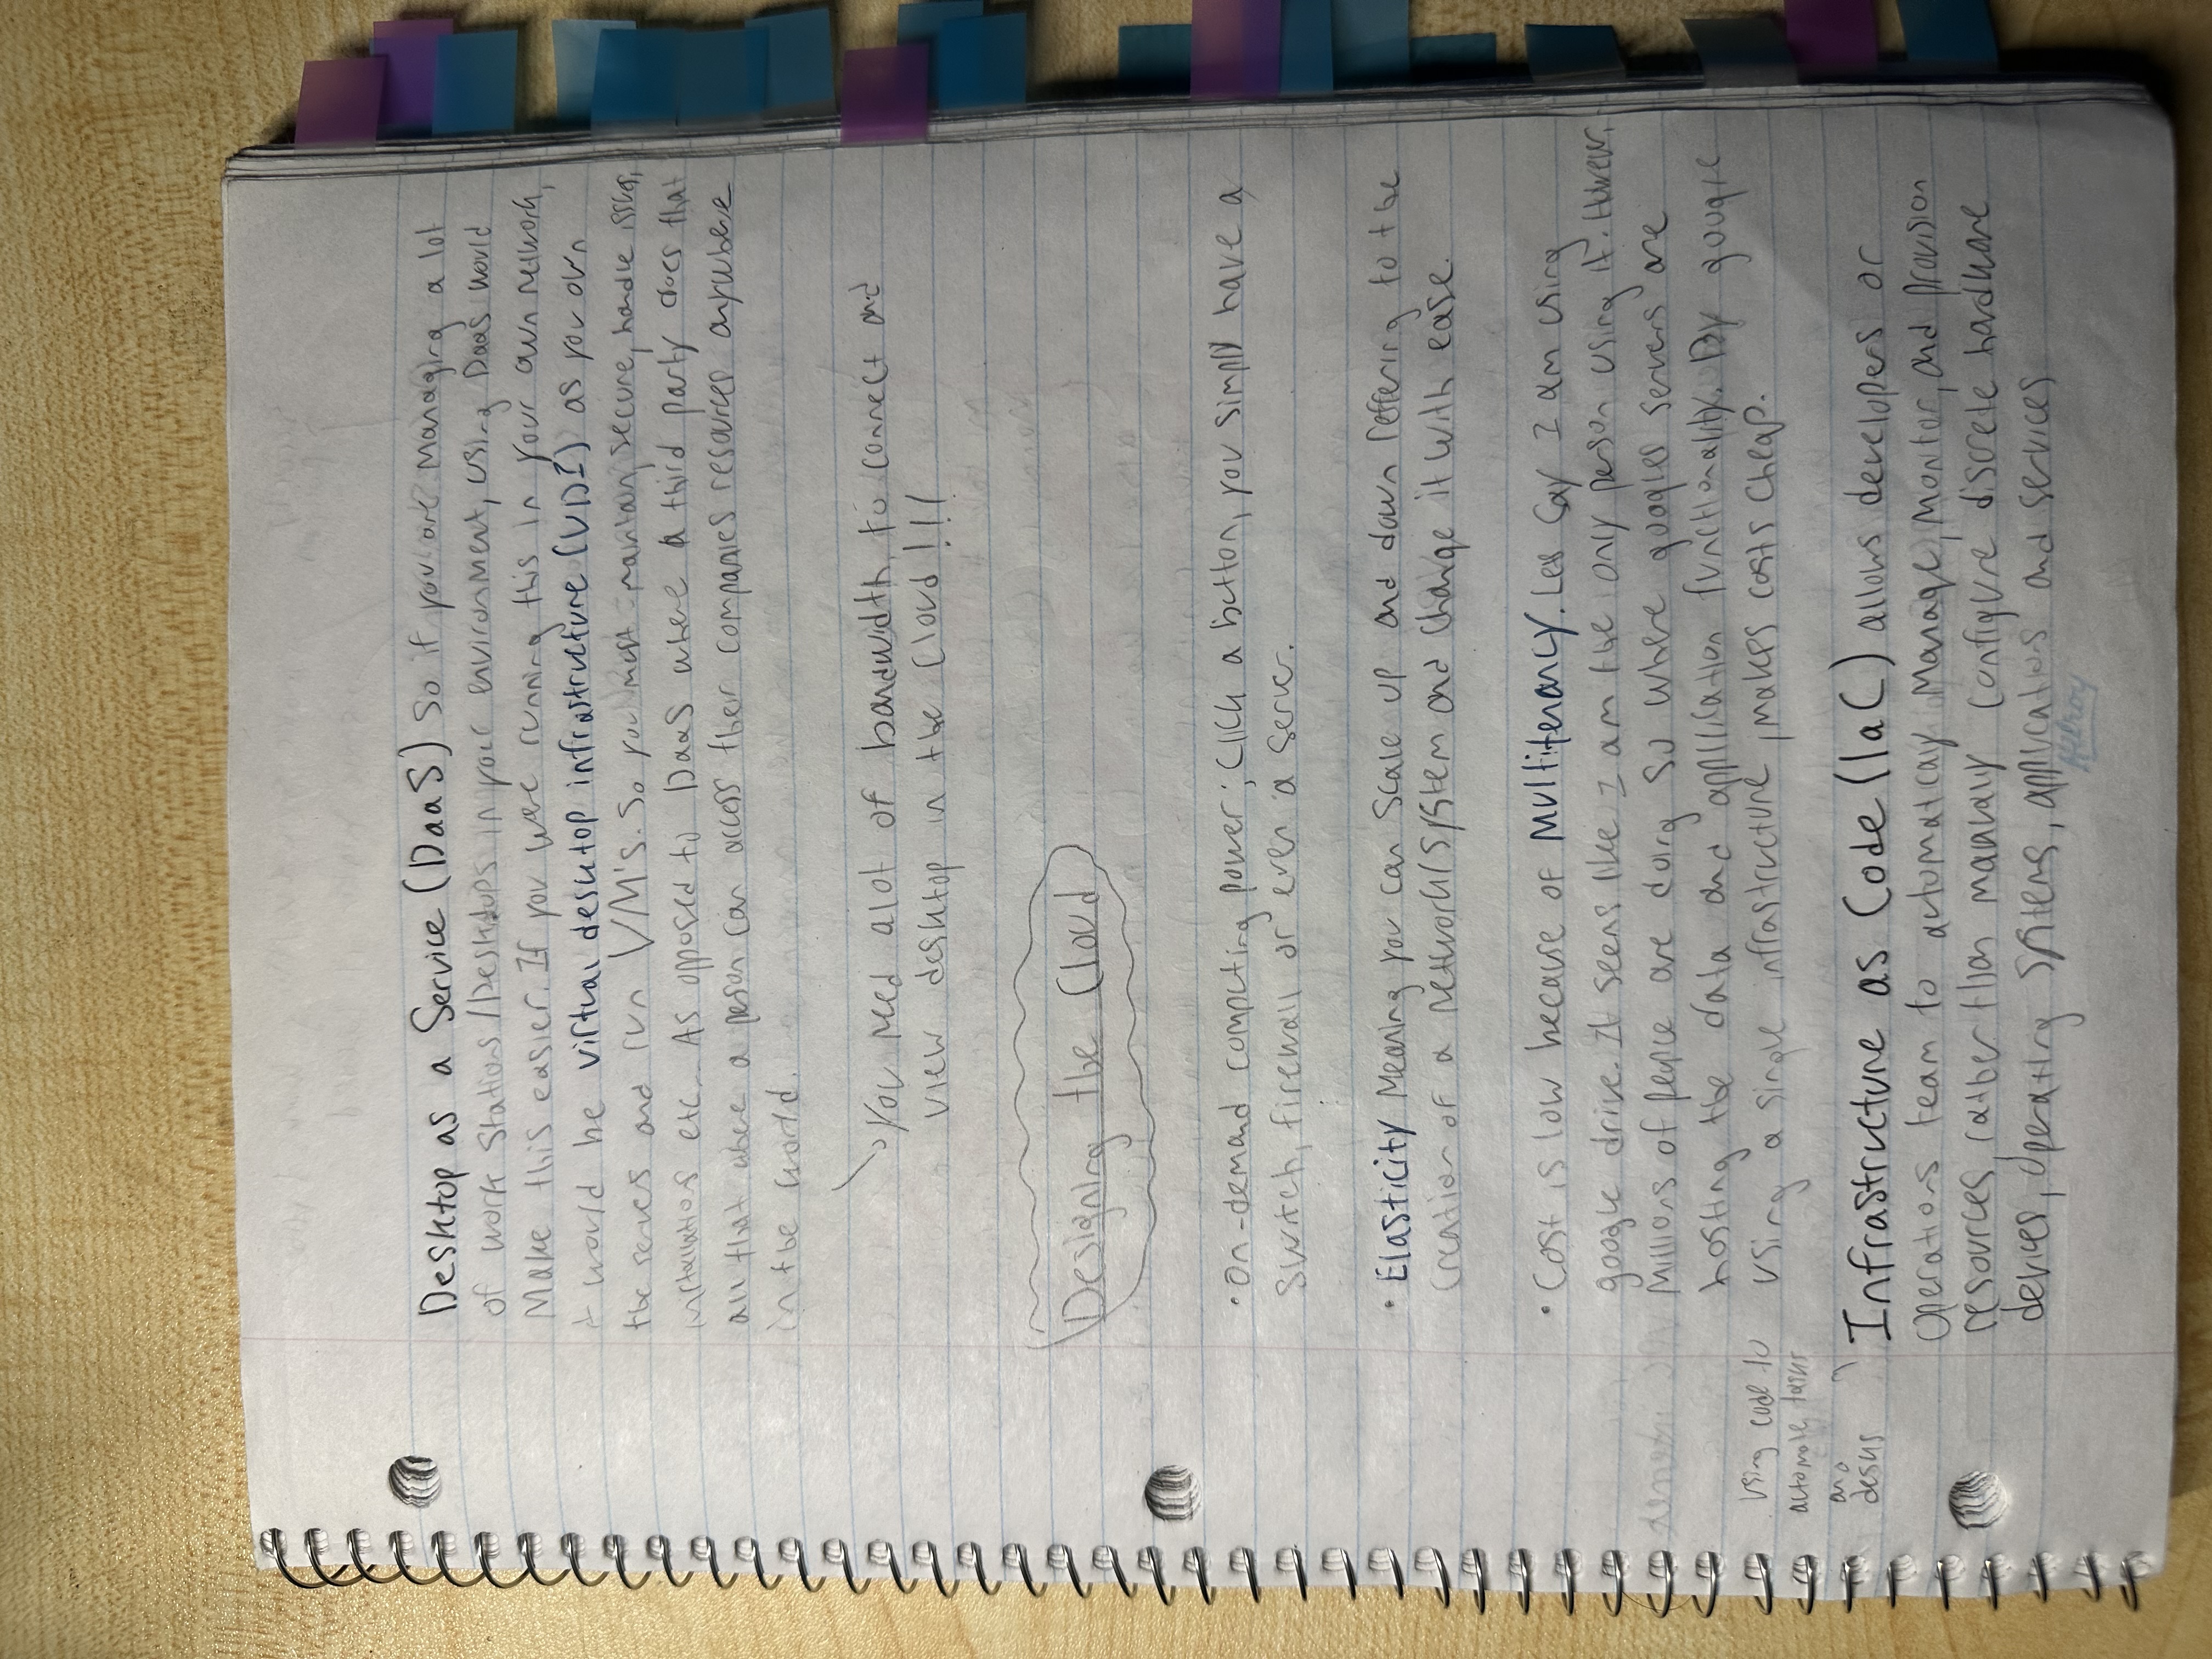 Desktop as a Service (DaaS) So if you are managing a lot
of work stations/Desktops in your environment, using DaaS would
Make this easier. If you were running this in your own network,
it would be virtual desktop infrastructure (VDI) as you own
the servers and run VM's. So you must maintain, secure, handle issues,
installations etc... As opposed to DaaS where a third party does that
all that where a person can access their companies resources anywhere
in the world.
You need alot of bandwidth, to connect and
view desktop in the Cloud!!!
Designing the Cloud
• On-demand computing power; Click a button, you simply have a
Switch, firewall or even a server.
• Elasticity Meaning you can scale up and down reffering to the
creation of a network/system and change it with ease.
• Cost is low because of Multitenancy. Lets say I am using
google drive. It seems like I am the only person using it. However,
Millions of people are doing so where googles servers are
hosting the data and application functionality. By google
using a single infrastructure, makes costs cheap.
using code to
automate tasks
and
Infrastructure as Code (IaC) allows developers or
Operations team to automatically Manage, Monitor, and provision
resources, rather than manually configure discrete hardware
devices, operating systems, applications and services
Hilroy